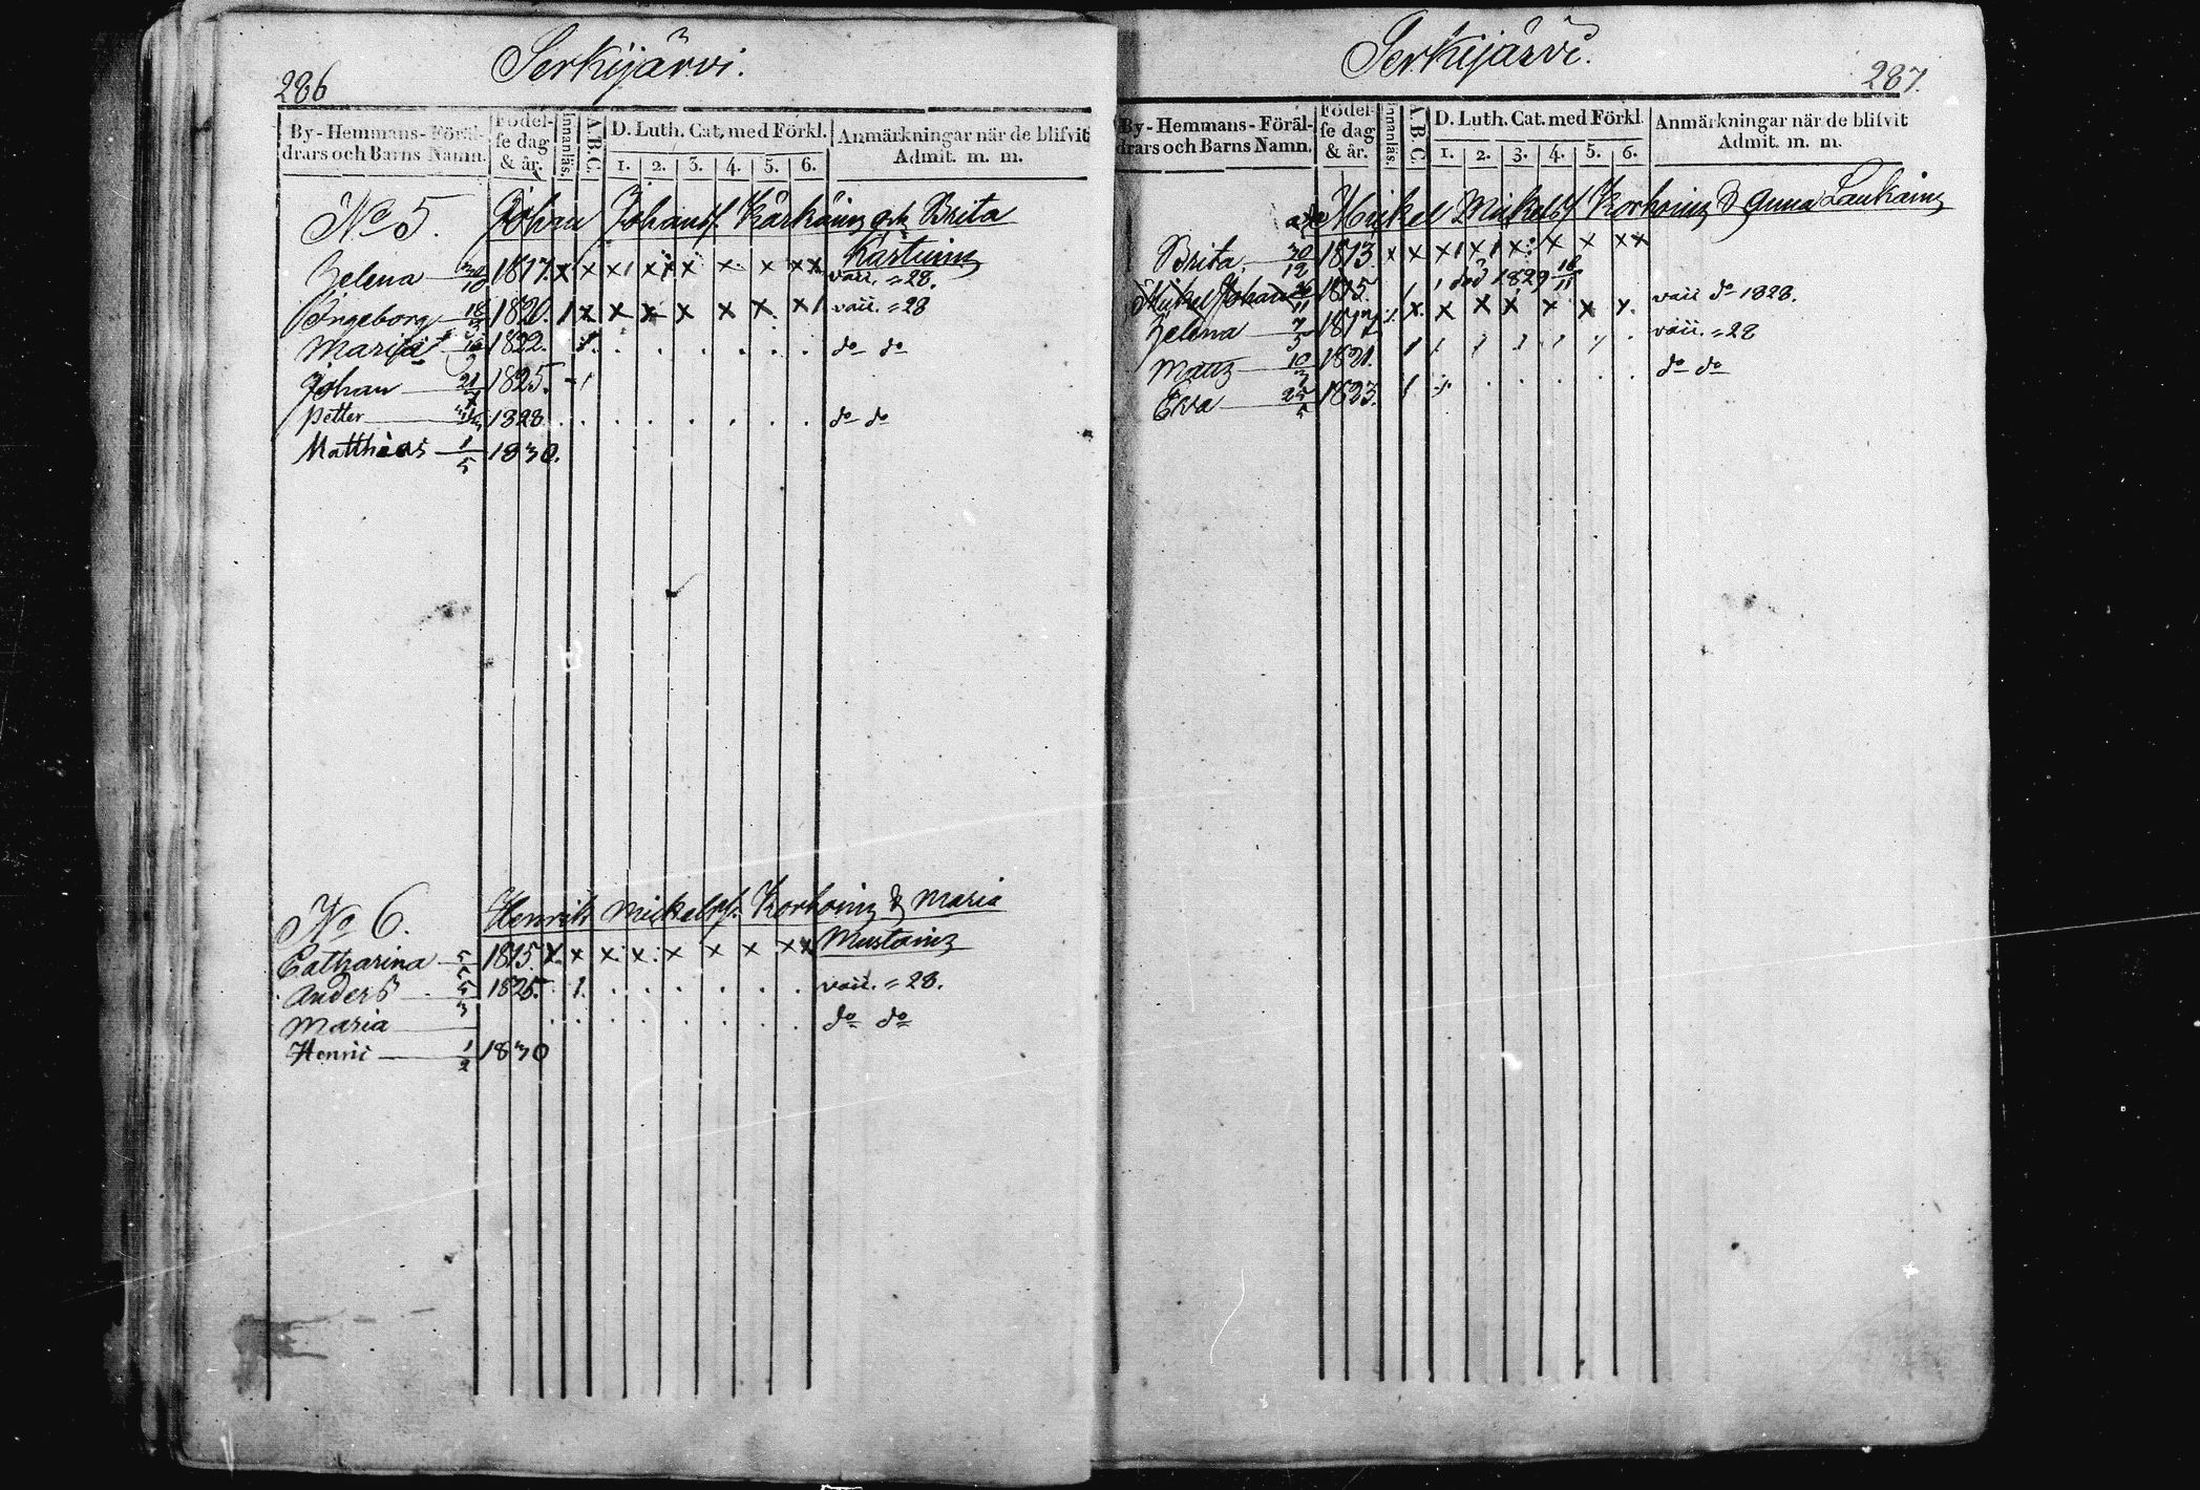 286
Serkijärvi.
By-Hemmans-Föräl-
drars och Barns Namn.
Födel-
se dag
& år.
Innanläs.
A.B.C.
D. Luth. Cat. med Förkl.
1. 2. 3. 4. 5. 6.
Anmärkningar när de blifvit
Admit. m. m.
No 5. Johan Johanss. och Brita
Helena 10 1817. x x x x x x x x x = 28.
Ingeborg 18 1820. 1 x x x x x x x 1 = 28
Maria 1822. do do
Johan 21 1825. 1
Petter 1828 do do
Matthias 1/5 1830.
No 6. Henrik Mickelss. Korhoin & Maria
Mustoin
Catharina 1815. x x x x x x x x x
Anders 5/3 1825. 1. = 28.
Maria do do
Henric 1/2 1830
Serkijärvi.
287.
By-Hemmans-Föräl-
drars och Barns Namn.
Födel-
se dag
& år.
Innanläs.
A.B.C.
D. Luth. Cat. med Förkl.
1. 2. 3. 4. 5. 6.
Anmärkningar när de blifvit
Admit. m. m.
Mickel Mickelss Korhoin & Anna Laukain
Brita 30/12 1813. x x x x x x x x x
Mickel Johan 11 1815. 1 1 död 1829 18/11 do 1828.
Helena 7/5 1817 x x x x x x x = 28
Matts 10/3 1821. 1 1 1 1 1 1 do do
Eva 25/5 1823. 1